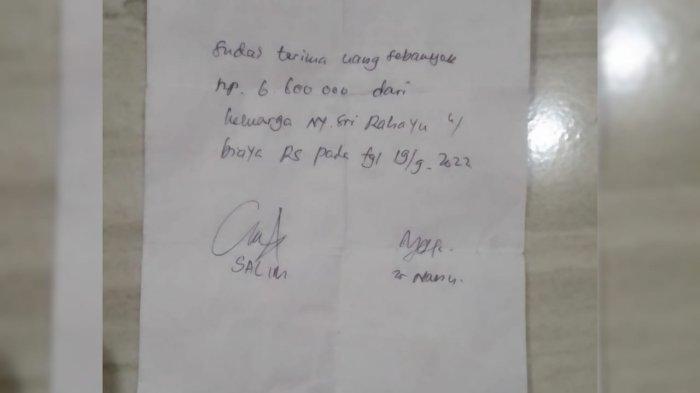 Sudah terima uang sebanyak
Rp. 6 600 000 dari
keluarga NY. Sri Rahayu u/
biaya RS pada tgl 19/9-2022
SALIM